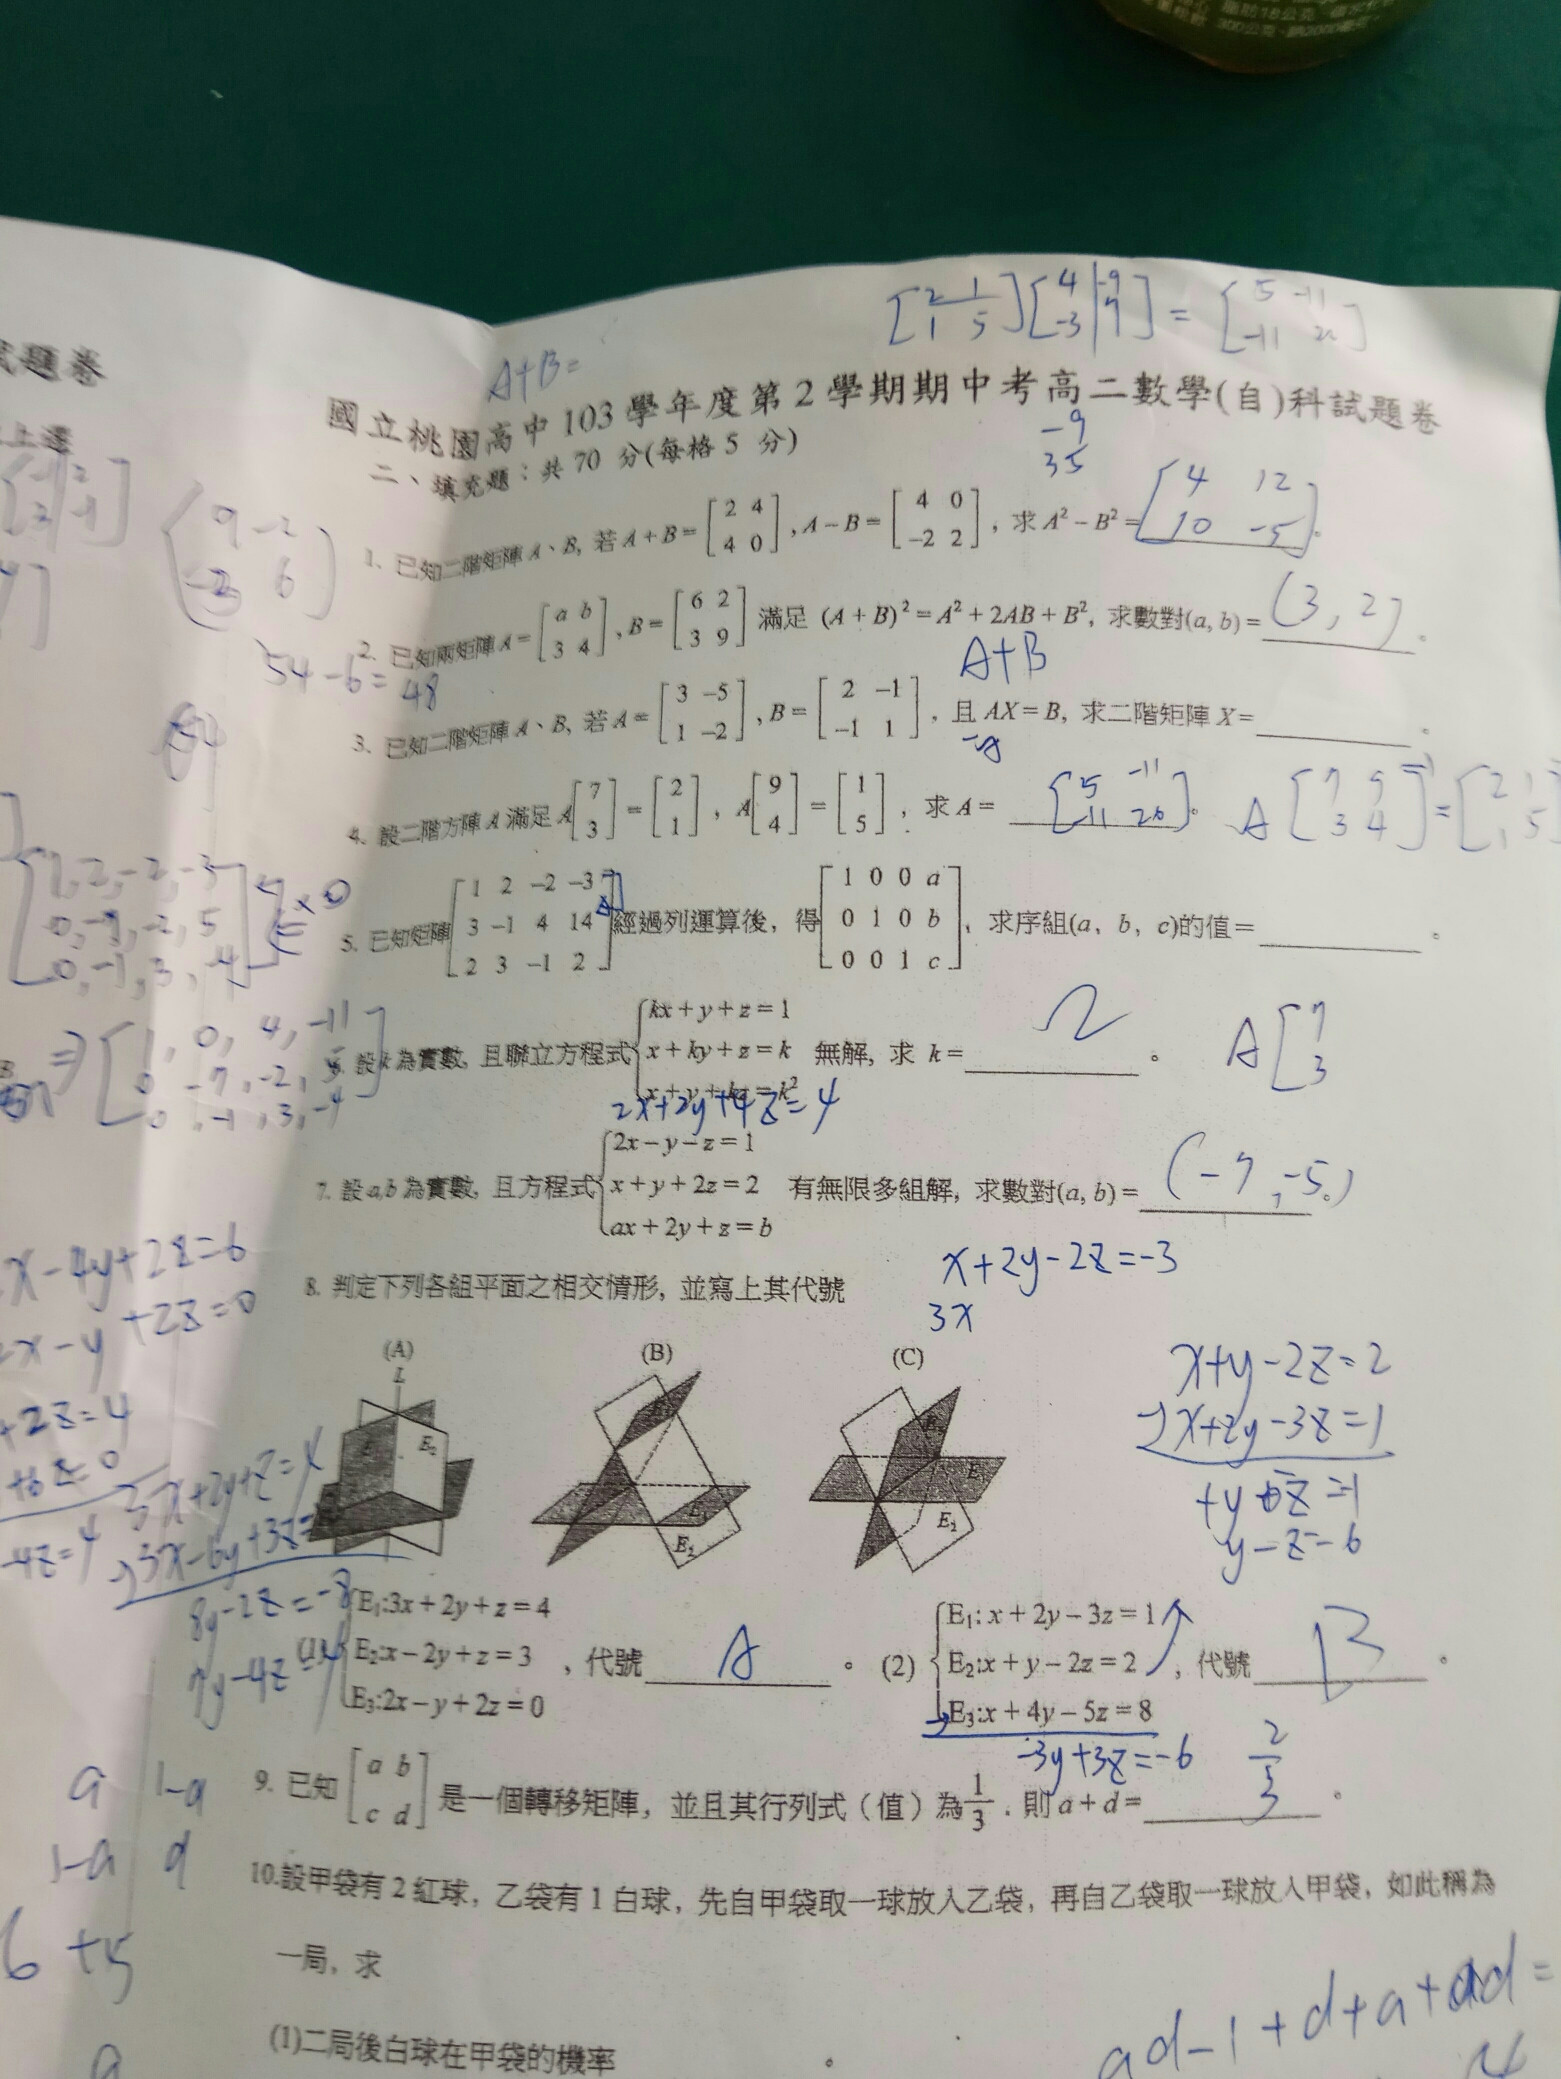 A+B=
[2 1
1 5][4 -9
-3 7] = [5 -11
-11 26]
試題卷
上選
國立桃園高中103學年度第2學期期中考高二數學(自)科試題卷
二、填充題：共70 分(每格5 分)
-9
35
1. 已知二階矩陣A、B, 若A+B=[2 4
4 0], A-B=[4 0
-2 2], 求A²-B²=[4 12
10 -5].
[9 -2
-3 6]
2. 已知兩矩陣A=[a b
3 4], B=[6 2
3 9] 滿足 (A+B)²=A²+2AB+B², 求數對(a, b)=(3, 2)。
54-6=48
A+B
3. 已知二階矩陣A、B, 若A=[3 -5
1 -2], B=[2 -1
-1 1], 且AX=B, 求二階矩陣X=______。
4. 設二階方陣A滿足A[7
3]=[2
1], A[9
4]=[1
5], 求A=[5 -11
-11 26]。
A[7 9
3 4]⁻¹=[2 1
1 5]
5. 已知矩陣[1 2 -2 -3
3 -1 4 14
2 3 -1 2]經過列運算後, 得[1 0 0 a
0 1 0 b
0 0 1 c], 求序組(a, b, c)的值=______。
[1, 2, -2, -3
0, -7, -2, 5
0, -1, 3, -4]
⇒[1, 0, 4, -11
0 -7, -2, 5
0, -1, 3, -4]
設k為實數, 且聯立方程式{kx+y+z=1
x+ky+z=k
x+y+kz=k² 無解, 求 k=2。
A[7
3
2x+2y+4z=4
7. 設a,b為實數, 且方程式{2x-y-z=1
x+y+2z=2
ax+2y+z=b 有無限多組解, 求數對(a, b)=(-7, -5)。
x-4y+2z=6
x-y +2z=0
+2z=4
+6z=0
-4z=4
x+2y-2z=-3
3x
8. 判定下列各組平面之相交情形, 並寫上其代號
(A)
L
E₂
(B)
E₁
E₂
(C)
E₁
E₂
x+y-2z=2
-)x+2y-3z=1
y-z=-6
3x+2y+z=4
-)3x-6y+3z=
8y-2z=-8
7y-4z
(1){E₁:3x+2y+z=4
E₂:x-2y+z=3
E₃:2x-y+2z=0, 代號A。
(2){E₁: x+2y-3z=1
E₂:x+y-2z=2
E₃:x+4y-5z=8, 代號B。
-3y+3z=-6
9. 已知[a b
c d]是一個轉移矩陣, 並且其行列式（值）為1/3. 則a+d=2/3。
a 1-a
1-a d
10.設甲袋有2紅球, 乙袋有1白球, 先自甲袋取一球放入乙袋, 再自乙袋取一球放入甲袋, 如此稱為
一局, 求
6 +5
(1)二局後白球在甲袋的機率 。
ad-1+d+a+ad=
a